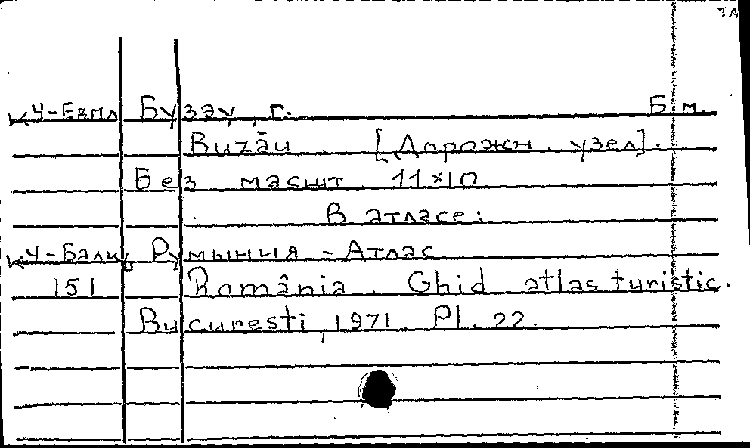 ЗА
к4-Евмл Бузэу, г. Б.м.
Buzău. [Дорожн. узел].
Без масшт. 11×10
В атласе:
к4-Балк Румыния - Атлас
151 România. Ghid atlas turistic.
Bucureşti, 1971. Pl. 22.